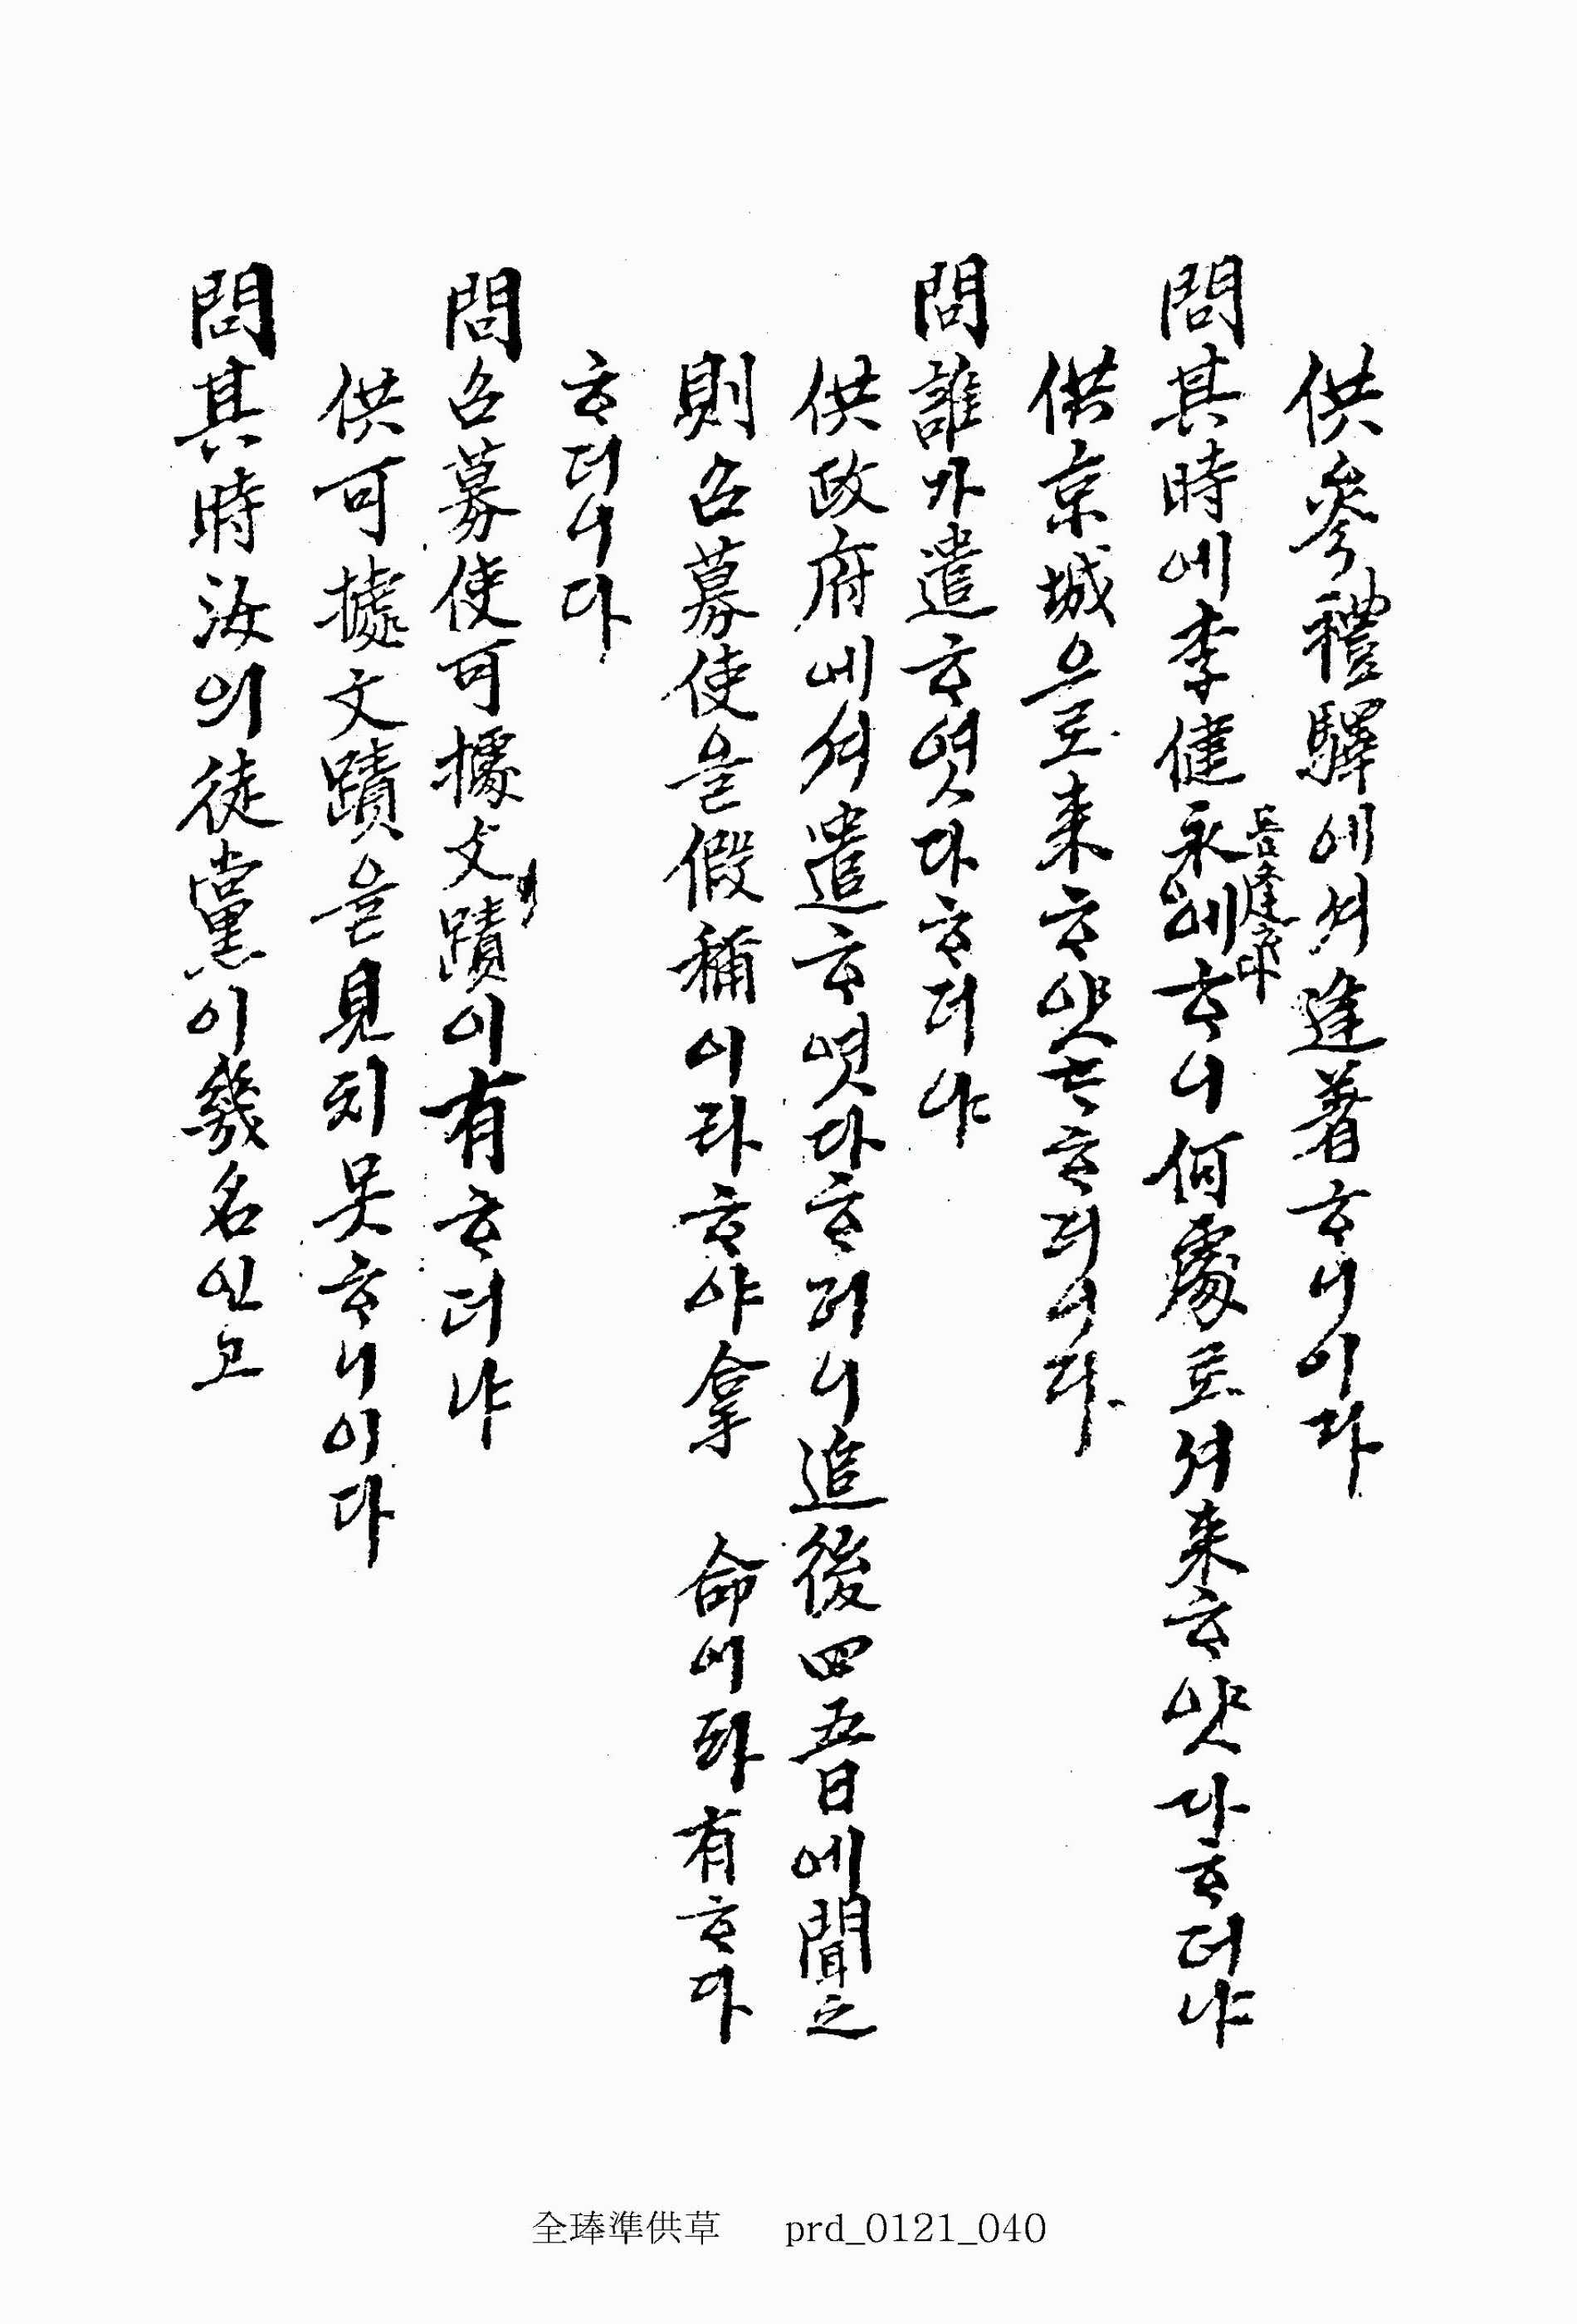 供參禮驛에셔逢著ᄒᆞ니이다
問其時에李健永을逢ᄒᆞ니何處로셔來ᄒᆞ얏다ᄒᆞ더냐
供京城으로來ᄒᆞ얏노라ᄒᆞ더니다
問誰가遣ᄒᆞ엿다ᄒᆞ더냐
供政府에셔遣ᄒᆞ엿다ᄒᆞ더니追後四五日에聞之
則召募使을假稱이라ᄒᆞ야拿 命이라有ᄒᆞ다
ᄒᆞ더니다
問召募使可據文蹟이有ᄒᆞ더냐
供可據文蹟을見치못ᄒᆞ니이다
問其時汝의徒黨이幾名인고
全琫準供草 prd_0121_040